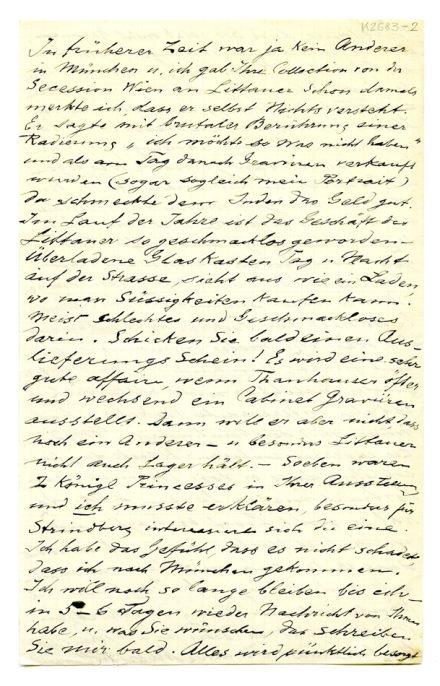 K2683-2
In früherer Zeit war ja kein Anderer
in München u. ich gab Ihre Collection von der
Secession Wien an Littauer Schon damals
merkte ich, dass er selbst Nichts versteht.
Er sagte mit brutaler Berührung einer
Radierung „ich möchte so was nicht haben"
und als am Tag danach Gravüren verkauft
wurden (sogar sogleich mein Portrait)
da schmeckte dem Juden das Geld gut.
Im Lauf der Jahre ist das Geschäft der
Littauer so geschmacklos geworden –
überladene Glaskasten Tag u. Nacht
auf der Strasse, sieht aus wie ein Laden
wo man Süssigkeiten kaufen kann.
Meist schlechtes und Geschmackloses
darin. Schicken Sie bald einen Aus-
lieferungs Schein! Es wird eine sehr
gute affair, wenn Thanhauser öfter
und wechsend ein Cabinet Gravüren
ausstellt. Dann will er aber nicht dass
noch ein Anderer – u. besonders Littauer
nicht auch Lager hält. – Soeben waren
2 Königl Princesses in Ihrer Ausstellung
und ich musste erklären, besonders für
Strindberg interessiert sich die eine.
Ich habe das Gefühl, dass es nicht schadet
dass ich nach München gekommen.
Ich will noch so lange bleiben bis ich
in 5–6 Tagen wieder Nachricht von Ihnen
habe, u. was Sie wünschen, das schreiben
Sie mir bald. Alles wird pünktlich besorgt